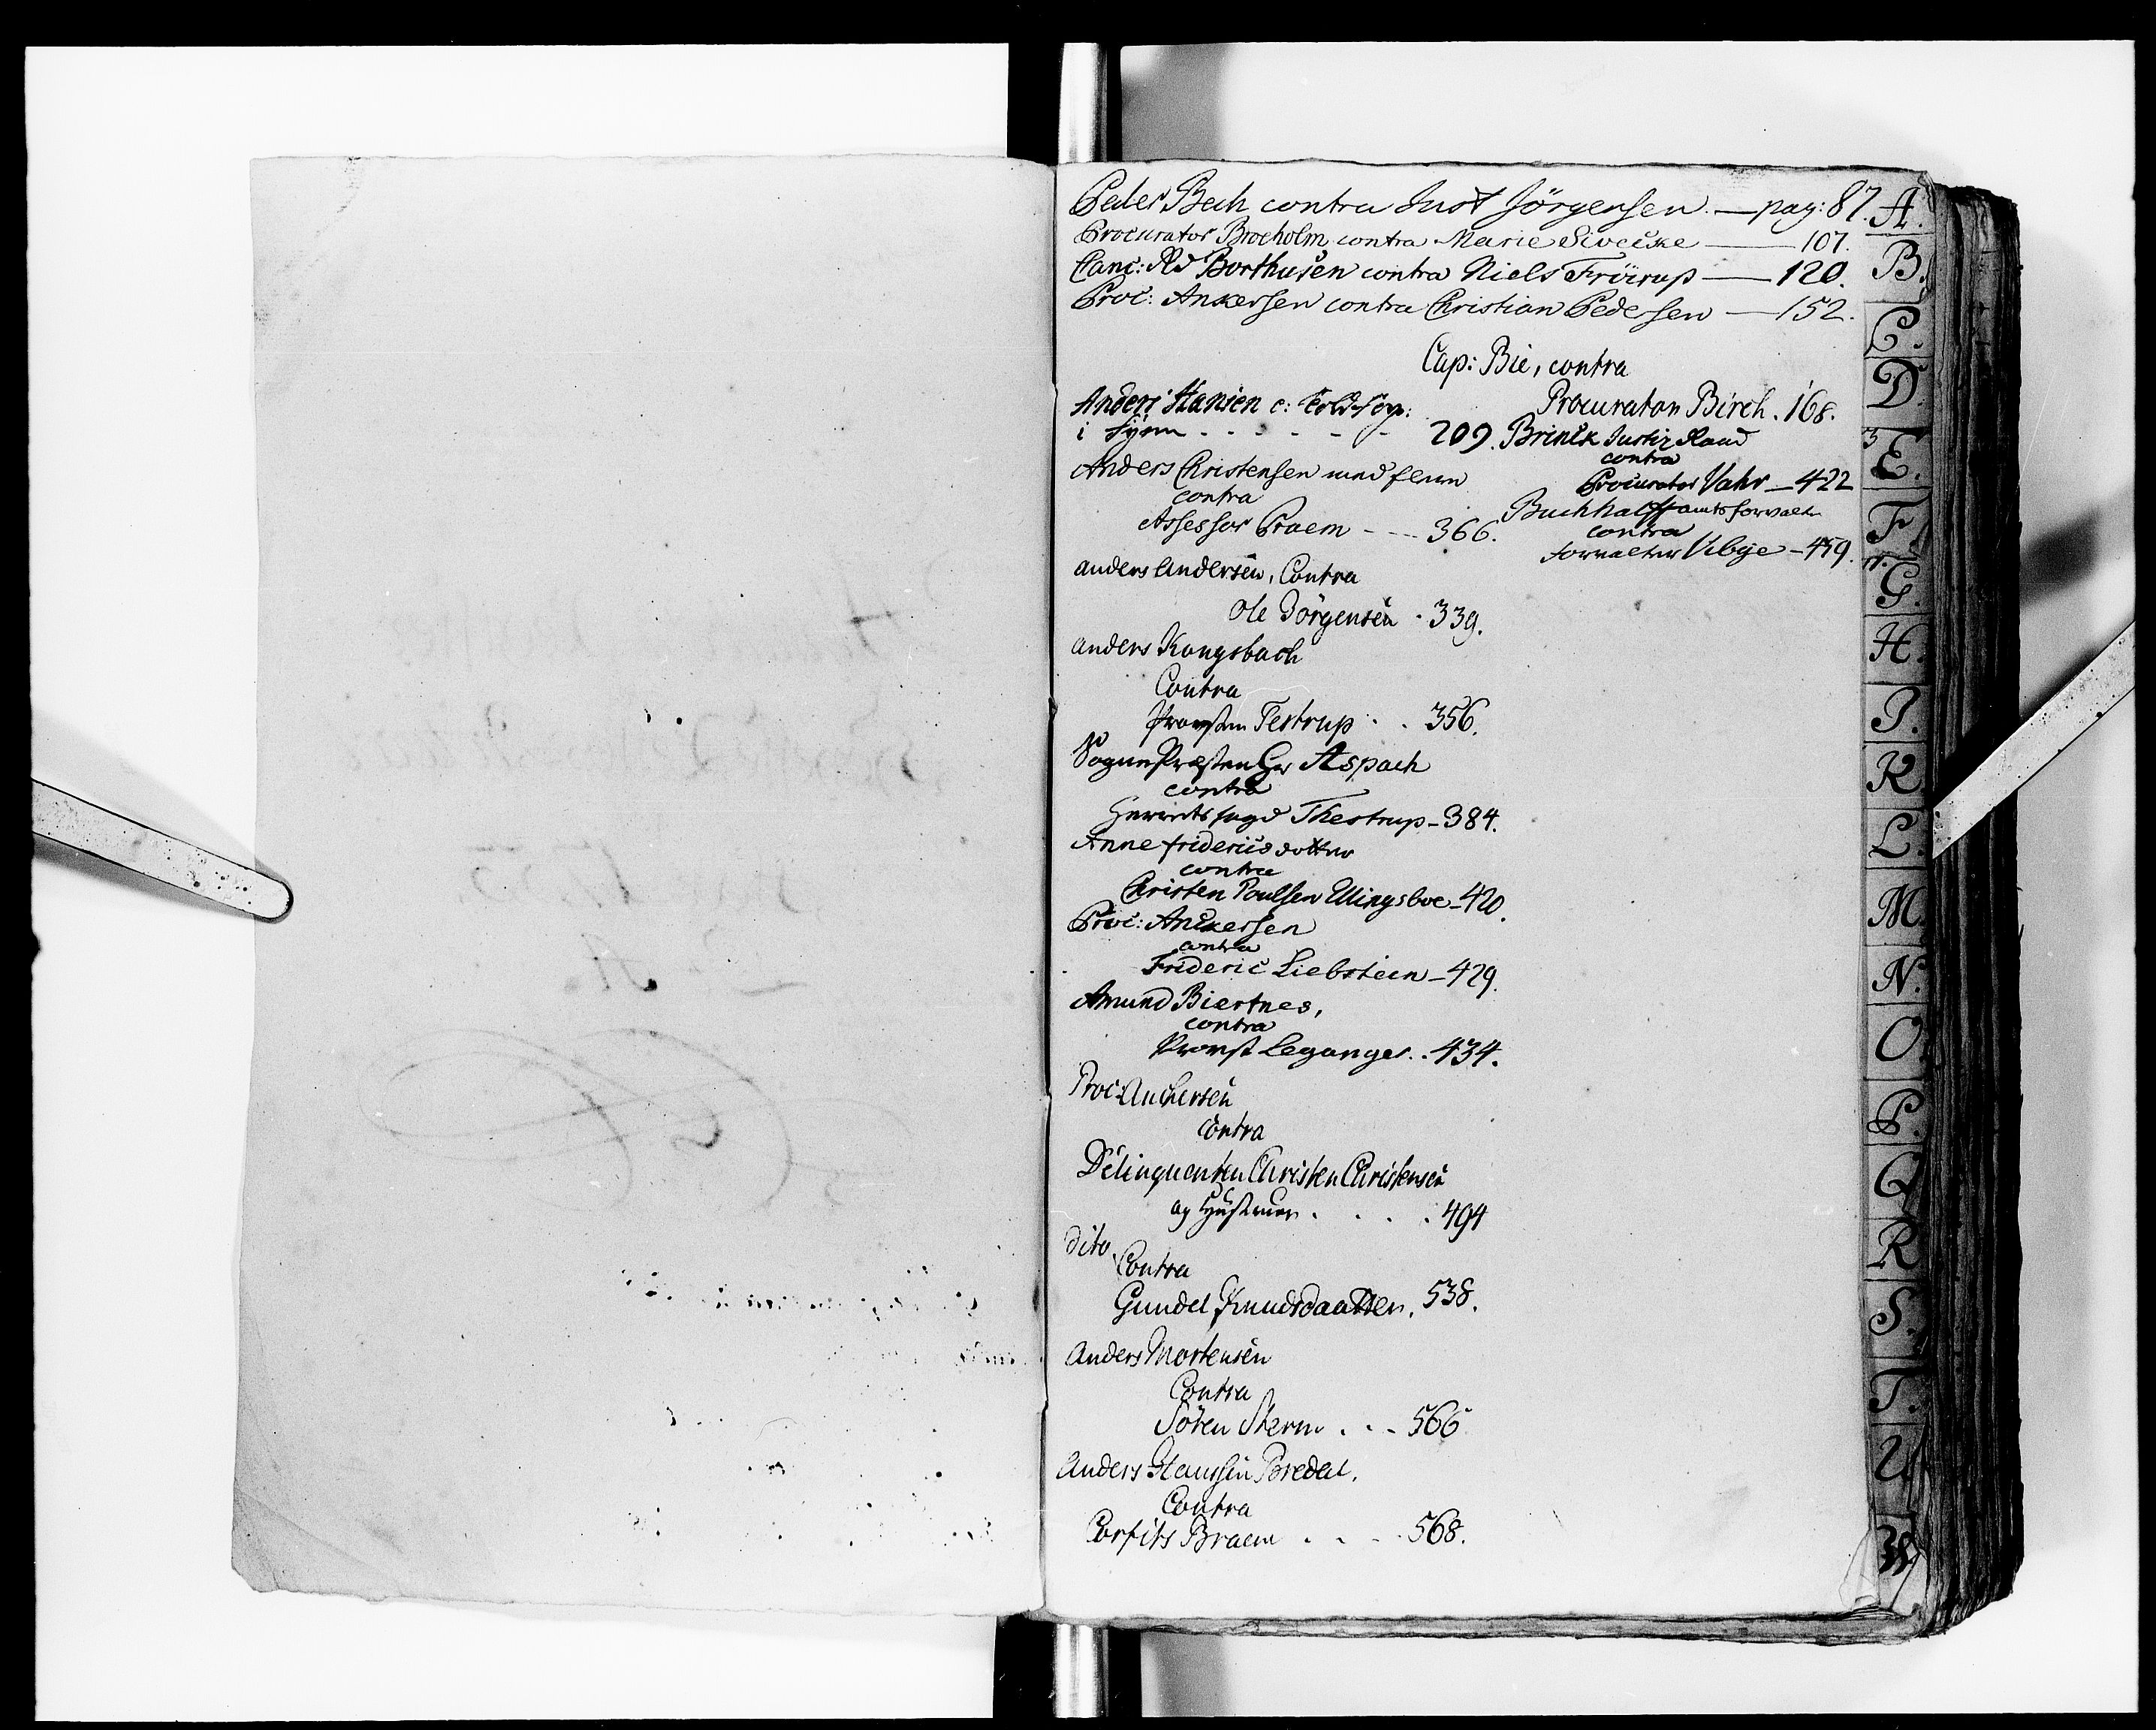 Peder Bech contra Just Jörgensen. — pag: 87.
Procurator Brocholm contra Marie Sivecke — 107.
Canc: Rd Borthusen contra Niels Fröirup — 120.
Proc: Ankersen contra Christian Pedersen — 152.
Cap: Bie, contra
Procurator Birch. 168.
Anders Hansen c:
i Fyen - - - - - - 209.
Brinck Justiz Raad
contra
Procurator Vahr — 422
Anders Christensen
contra
Assessor Praem - --- 366.
Buchhalff amtsforvalt
contra
forvalter Vibye — 459.
anders Andersen, Contra
Ole Jörgensen . 339.
anders Kongsbach
Contra
Provsten Testrup . . 356.
Sogne Præsten Hr Aspach
contra
Herritsfoged Thestrup — 384.
Anne friderics dotter
contra
Christen Poulsen Ellingsboe — 420.
Proc: Anckersen
contra
Frideric Liebstein — 429.
Amund Biertnes,
contra
Provst Leganger. . 434.
Proc: Anchersen
contra
Delinquenten Christen Christensen
og Hustruer . . . . 494
dito
Contra
Gundel Knudsdaatter. 538.
Anders Mortensen
Contra
Sören Sterm . . - 566
Anders Hanssen Bredal.
Contra
Corfits Braem . . . 568.
A.
B.
C.
D.
E.
F.
G.
H.
I.
K.
L.
M.
N.
O.
P.
Q
R
S.
T.
U